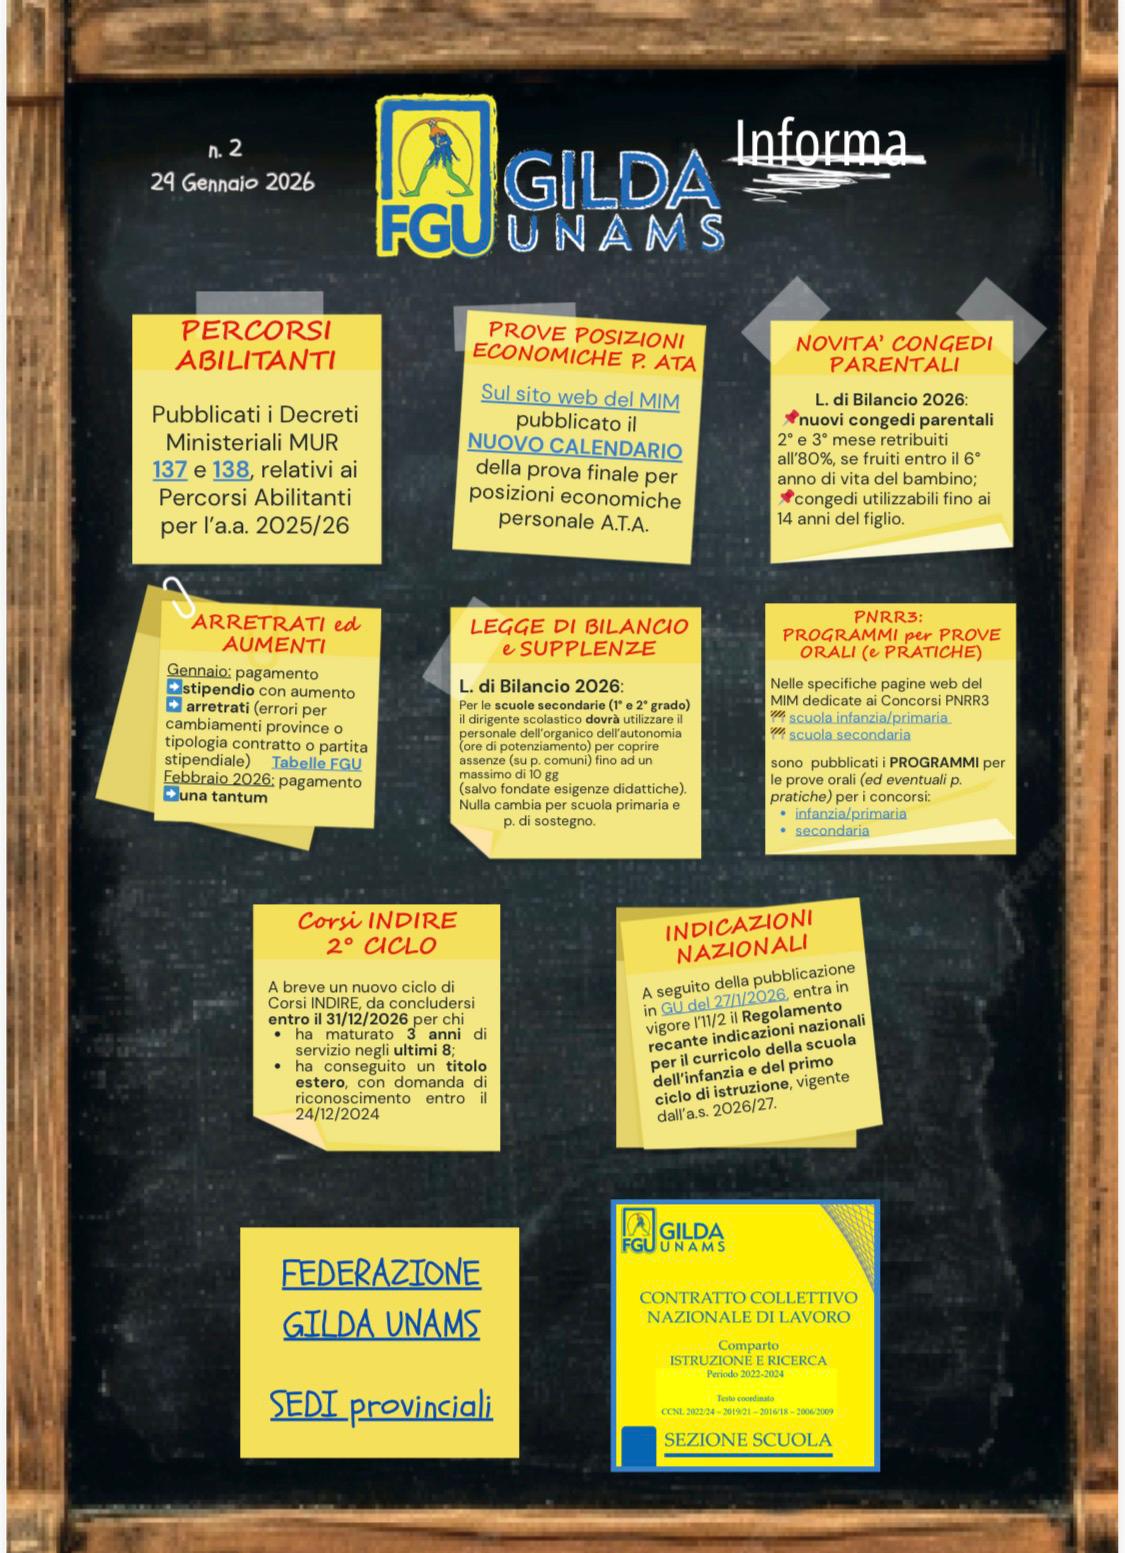 n. 2
29 Gennaio 2026
FGU
GILDA
UNAMS
Informa
PERCORSI
ABILITANTI
Pubblicati i Decreti
Ministeriali MUR
137 e 138, relativi ai
Percorsi Abilitanti
per l'a.a. 2025/26
PROVE POSIZIONI
ECONOMICHE P. ATA
Sul sito web del MIM
pubblicato il
NUOVO CALENDARIO
della prova finale per
posizioni economiche
personale A.T.A.
NOVITA' CONGEDI
PARENTALI
L. di Bilancio 2026:
📌nuovi congedi parentali
2° e 3° mese retribuiti
all'80%, se fruiti entro il 6°
anno di vita del bambino;
📌congedi utilizzabili fino ai
14 anni del figlio.
ARRETRATI ed
AUMENTI
Gennaio: pagamento
➡️stipendio con aumento
➡️ arretrati (errori per
cambiamenti province o
tipologia contratto o partita
stipendiale) Tabelle FGU
Febbraio 2026: pagamento
➡️una tantum
LEGGE DI BILANCIO
e SUPPLENZE
L. di Bilancio 2026:
Per le scuole secondarie (1° e 2° grado)
il dirigente scolastico dovrà utilizzare il
personale dell'organico dell'autonomia
(ore di potenziamento) per coprire
assenze (su p. comuni) fino ad un
massimo di 10 gg
(salvo fondate esigenze didattiche).
Nulla cambia per scuola primaria e
p. di sostegno.
PNRR3:
PROGRAMMI per PROVE
ORALI (e PRATICHE)
Nelle specifiche pagine web del
MIM dedicate ai Concorsi PNRR3
🚧 scuola infanzia/primaria
🚧 scuola secondaria
sono pubblicati i PROGRAMMI per
le prove orali (ed eventuali p.
pratiche) per i concorsi:
• infanzia/primaria
• secondaria
Corsi INDIRE
2° CICLO
A breve un nuovo ciclo di
Corsi INDIRE, da concludersi
entro il 31/12/2026 per chi
• ha maturato 3 anni di
servizio negli ultimi 8;
• ha conseguito un titolo
estero, con domanda di
riconoscimento entro il
24/12/2024
INDICAZIONI
NAZIONALI
A seguito della pubblicazione
in GU del 27/1/2026, entra in
vigore l'11/2 il Regolamento
recante indicazioni nazionali
per il curricolo della scuola
dell'infanzia e del primo
ciclo di istruzione, vigente
dall'a.s. 2026/27.
FEDERAZIONE
GILDA UNAMS
SEDI provinciali
FGU
GILDA
UNAMS
CONTRATTO COLLETTIVO
NAZIONALE DI LAVORO
Comparto
ISTRUZIONE E RICERCA
Periodo 2022-2024
Testo coordinato
CCNL 2022/24 – 2019/21 – 2016/18 – 2006/2009
SEZIONE SCUOLA